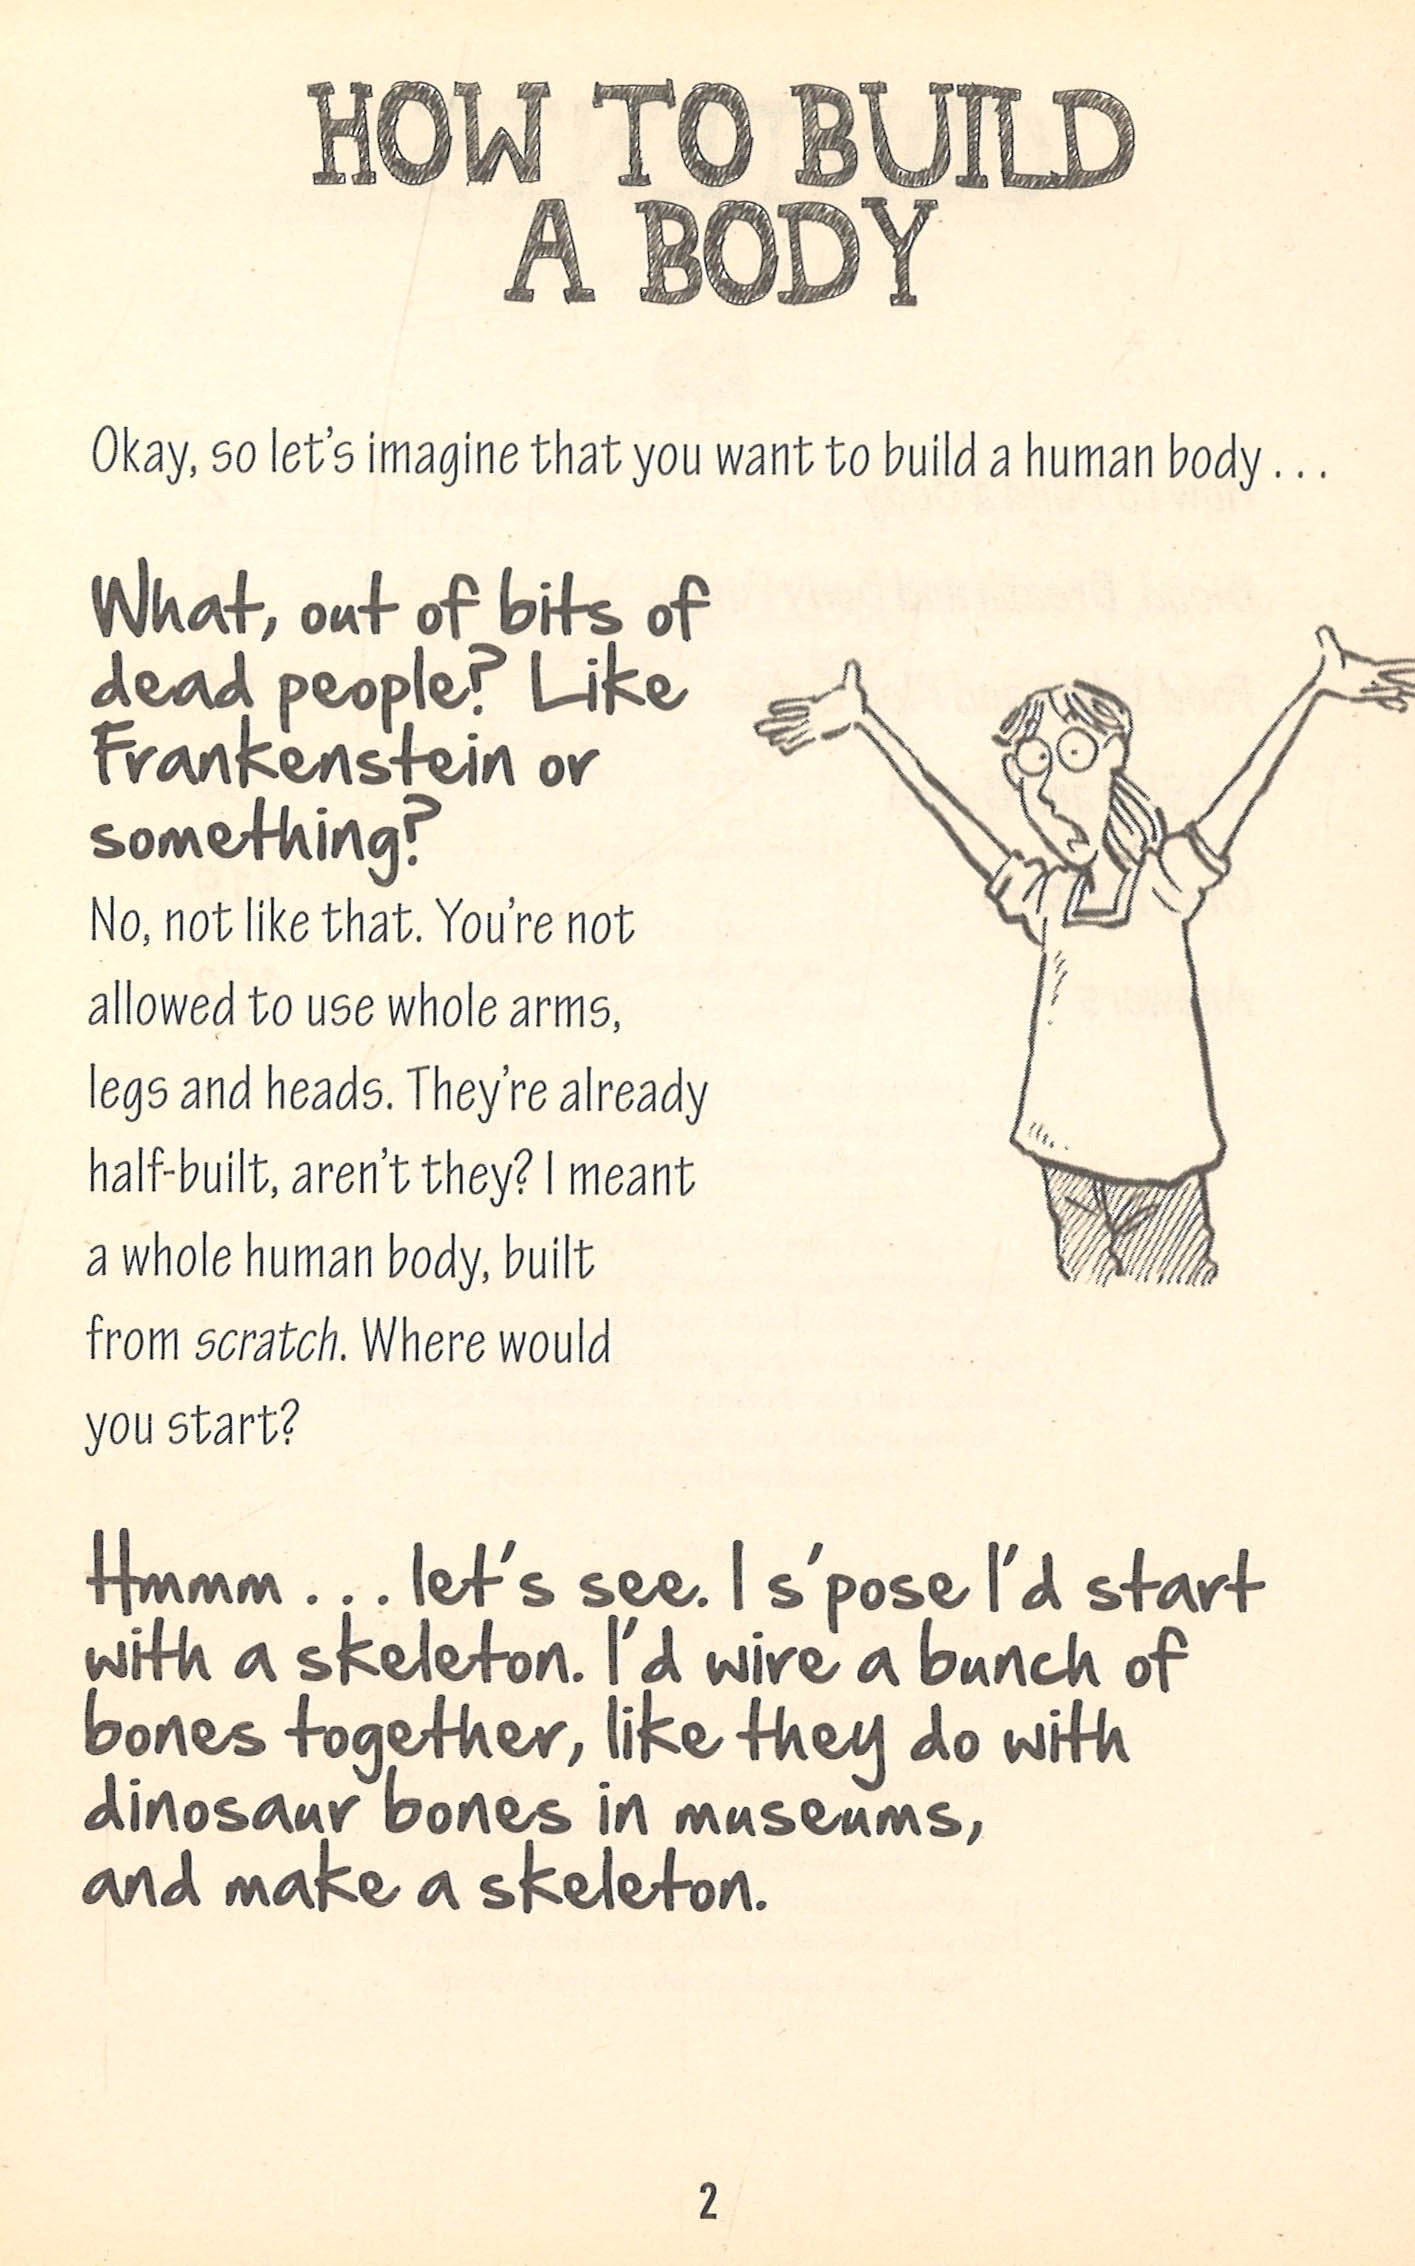 HOW TO BUILD
A BODY
Okay, so let's imagine that you want to build a human body . . .
What, out of bits of
dead people? Like
Frankenstein or
something?
No, not like that. You're not
allowed to use whole arms,
legs and heads. They're already
half-built, aren't they? I meant
a whole human body, built
from scratch. Where would
you start?
Hmmm . . . let's see. I s'pose I'd start
with a skeleton. I'd wire a bunch of
bones together, like they do with
dinosaur bones in museums,
and make a skeleton.
2